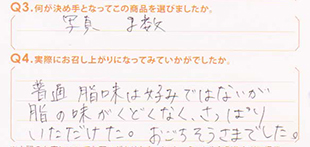 Q3.何が決め手となってこの商品を選びましたか。
写真 ま数
Q4.実際にお召し上がりになってみていかがでしたか。
普通 脂味は好みではないが
脂の味がくどくなく、さっぱり
いただけた。おごちそうさまでした。